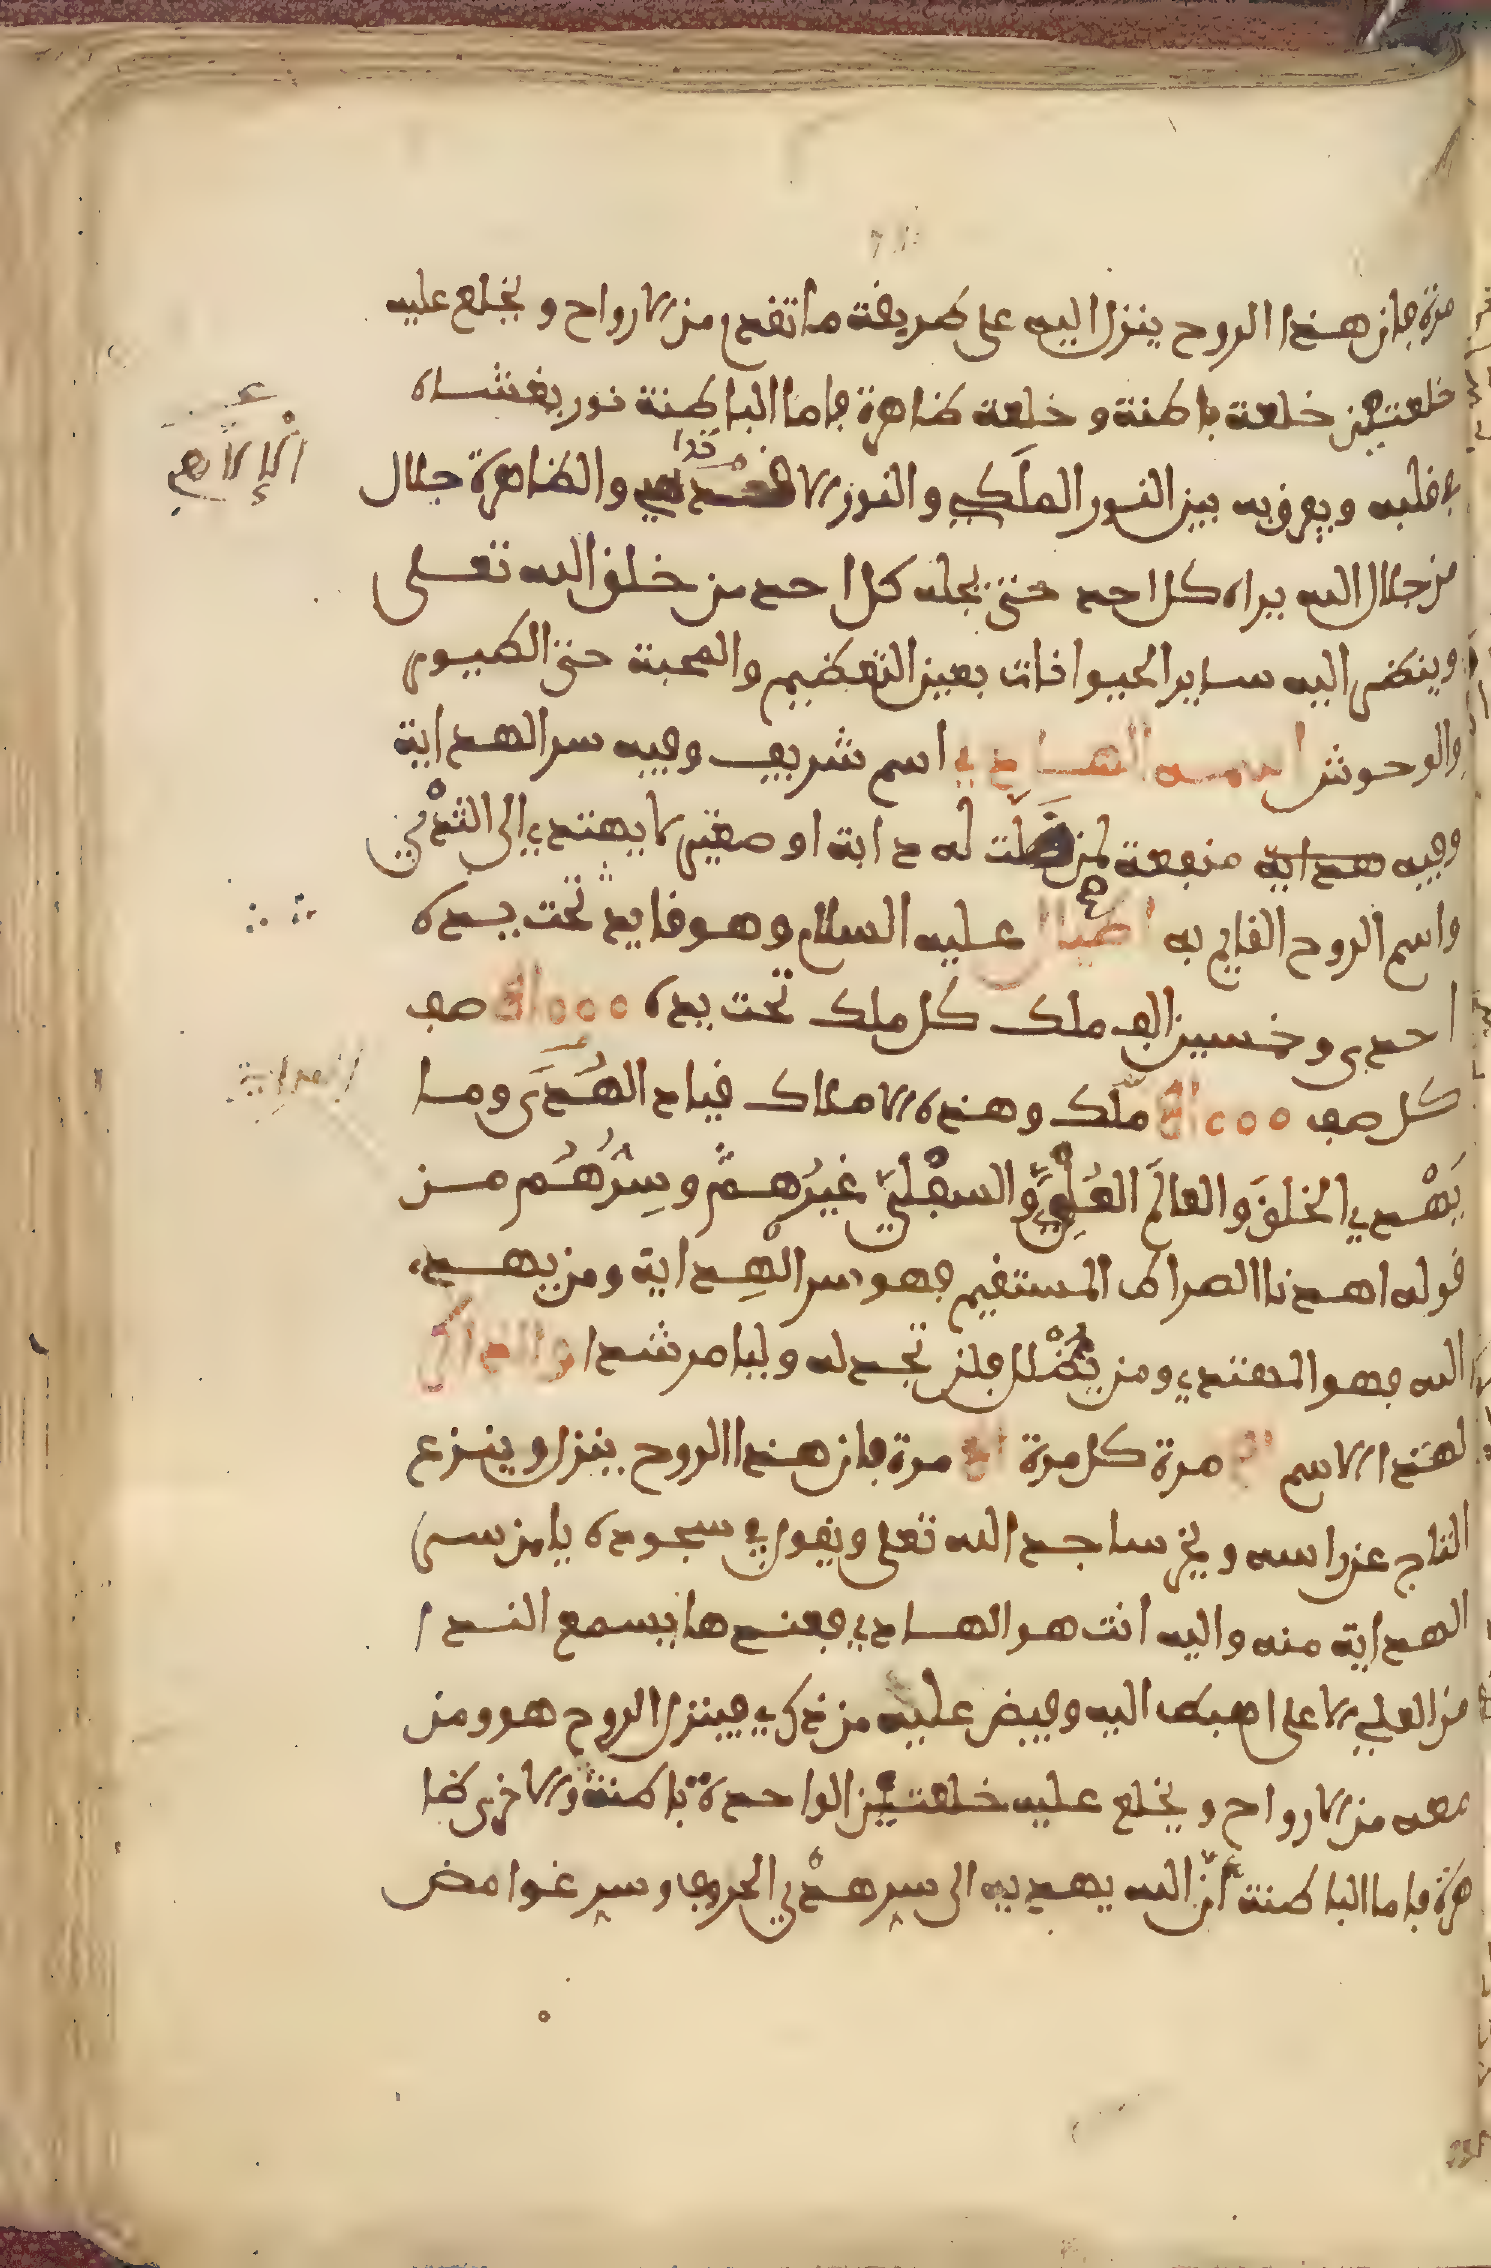 مرة فإن هذا الروح ينزل إليه على طريقة ما تقدم من الارواح ويخلع عليه
خلعتين خلعة باطنة وخلعة ظاهرة فاما الباطنة نور يغشاه
في قلبه ويفرق به بين النور الملكي والنور والظاهرة جلال
من جلال الله يراه كل احد حتى يجله كل احد من خلق الله تعلى
وينظر اليه ساير الحيوانات بعين التعظيم والمحبة حتى الطيور
والوحوش اسمه الهادي اسم شريف وفيه سر الهداية
وفيه هداية منفعة لمن ضلت له دابة او صغير لا يهتدي إلى الثدْي
واسم الروح القايم به عليه السلام وهو قايد تحت يده
احدى وخمسين الف ملك كل ملك تحت يده ٥٥٥ الف صف
كل صف ٥٥٥ الف ملَك وهذه الاملاك قياد الهُدَى وما
يَهْدي الخلقَ والعالَم العُلْوِيَّ والسفْليَّ غيرُهم وسِرُّهُم من
قوله اهدنا الصراط المستقيم فهو سر الْهِداية ومن يهد
الله فهو المهتدي ومن يُضْلل فلن تجد له وليا مرشدا والذاكر
لهذا الاسم مرة كل مرة مرة فإن هذا الروح ينزل وينزع
التاج عن راسه ويخر ساجد الله تعلى ويقول في سجوده يا من سر
الهداية منه واليه انت هو الهادي فعندها يسمع الندا
من العلي الاعلى اهبط اليه وفيض عليه من ذكري فينزل الروح هو ومن
معه من الارواح ويخلع عليه خلعتين الواحدة باطنة والاخرى ظا
هرة فاما الباطنة انّ الله يهديه الى سر هدْي الحروف وسر غوامض
الإلاهي
الهداية